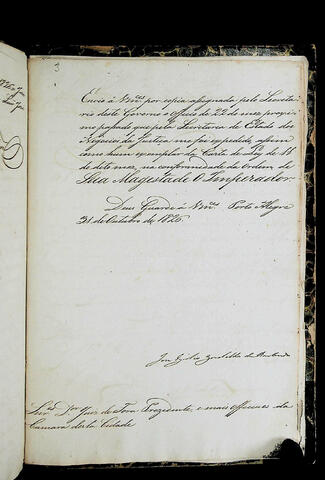 3
Envio á Vm.ces por copia assignada pelo Secreta-
rio deste Governo o officio de 22 de mez proxi-
mo passado que pela Secretaria de Estado dos
Negocios da Justiça me foi expedido, assim
como hum exemplar da Carta de Ley de 11
de dito mez, na conformidade da Ordem de
Sua Magestade O Imperador.
Deus Guarde á Vm.ces Porto Alegre
31 de Outubro de 1826.
Snr.es Dor Juiz de Fora Prezidente, e mais Officiaes da
Camara desta Cidade